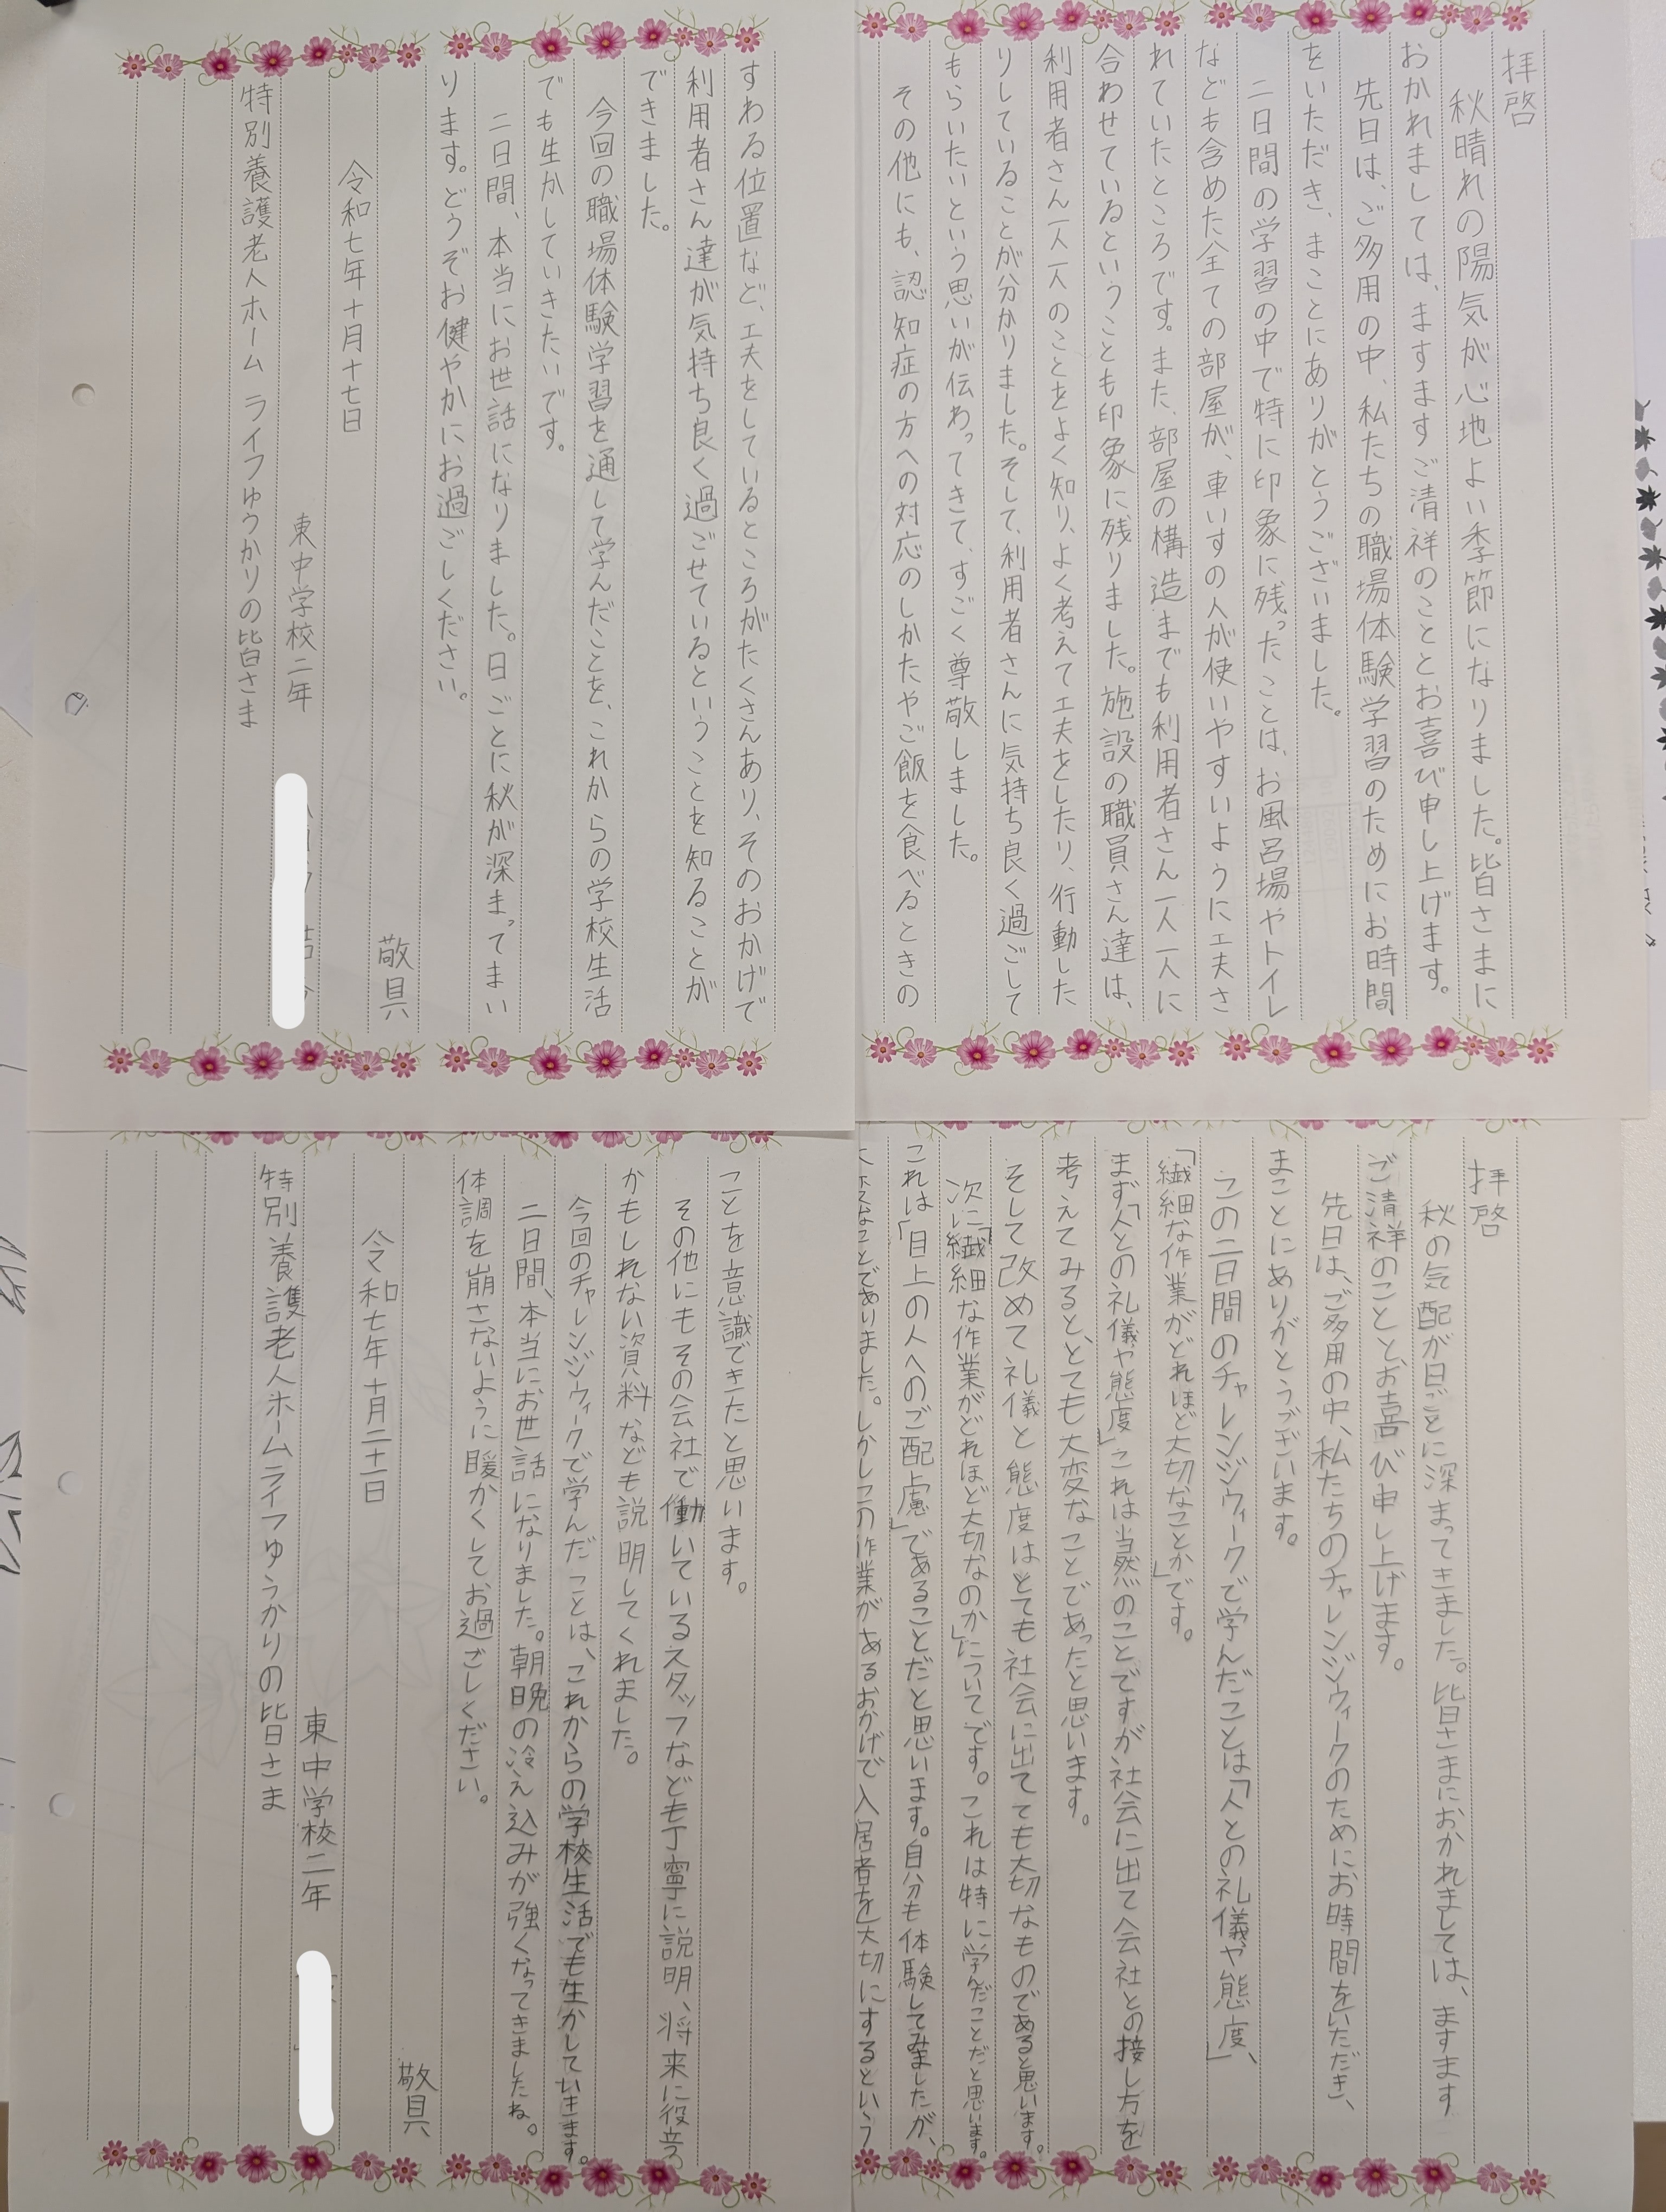 拝啓
秋晴れの陽気が心地よい季節になりました。皆さまに
おかれましては、ますますご清祥のこととお喜び申し上げます。
先日は、ご多用の中、私たちの職場体験学習のためにお時間
をいただき、まことにありがとうございました。
二日間の学習の中で特に印象に残ったことは、お風呂場やトイレ
なども含めた全ての部屋が、車いすの人が使いやすいように工夫さ
れていたところです。また、部屋の構造までも利用者さん一人一人に
合わせているということも印象に残りました。施設の職員さん達は、
利用者さん一人一人のことをよく知り、よく考えて工夫をしたり、行動した
りしていることが分かりました。そして、利用者さんに気持ち良く過ごして
もらいたいという思いが伝わってきて、すごく尊敬しました。
その他にも、認知症の方への対応のしかたやご飯を食べるときの
すわる位置など、工夫をしているところがたくさんあり、そのおかげで
利用者さん達が気持ち良く過ごせているということを知ることが
できました。
今回の職場体験学習を通して学んだことを、これからの学校生活
でも生かしていきたいです。
二日間、本当にお世話になりました。日ごとに秋が深まってまい
ります。どうぞお健やかにお過ごしください。
敬具
令和七年十月十七日
東中学校二年
特別養護老人ホーム ライフゆうかりの皆さま
拝啓
秋の気配が日ごとに深まってきました。皆さまにおかれましては、ますます
ご清祥のこととお喜び申し上げます。
先日は、ご多用の中、私たちのチャレンジウィークのためにお時間をいただき、
まことにありがとうございます。
この二日間のチャレンジウィークで学んだことは「人との礼儀や態度」、
「繊細な作業がどれほど大切なことか」です。
まず「人との礼儀や態度」これは当然のことですが社会に出て会社との接し方を
考えてみると、とても大変なことであったと思います。
そして改めて礼儀と態度はとても社会に出てても大切なものであると思います。
次に「繊細な作業がどれほど大切なのか」についてです。これは特に学んだことだと思います。
これは「目上の人へのご配慮」であることだと思います。自分も体験してみましたが、
なことでありました。しかしこの作業があるおかげで入居者を大切にするという
ことを意識できたと思います。
その他にもその会社で働いているスタッフなども丁寧に説明、将来に役立つ
かもしれない資料なども説明してくれました。
今回のチャレンジウィークで学んだことは、これからの学校生活でも生かしていきます。
二日間、本当にお世話になりました。朝晩の冷え込みが強くなってきましたね。
体調を崩さないように暖かくしてお過ごしください。
敬具
令和七年十月二十一日
東中学校二年
特別養護老人ホームライフゆうかりの皆さま